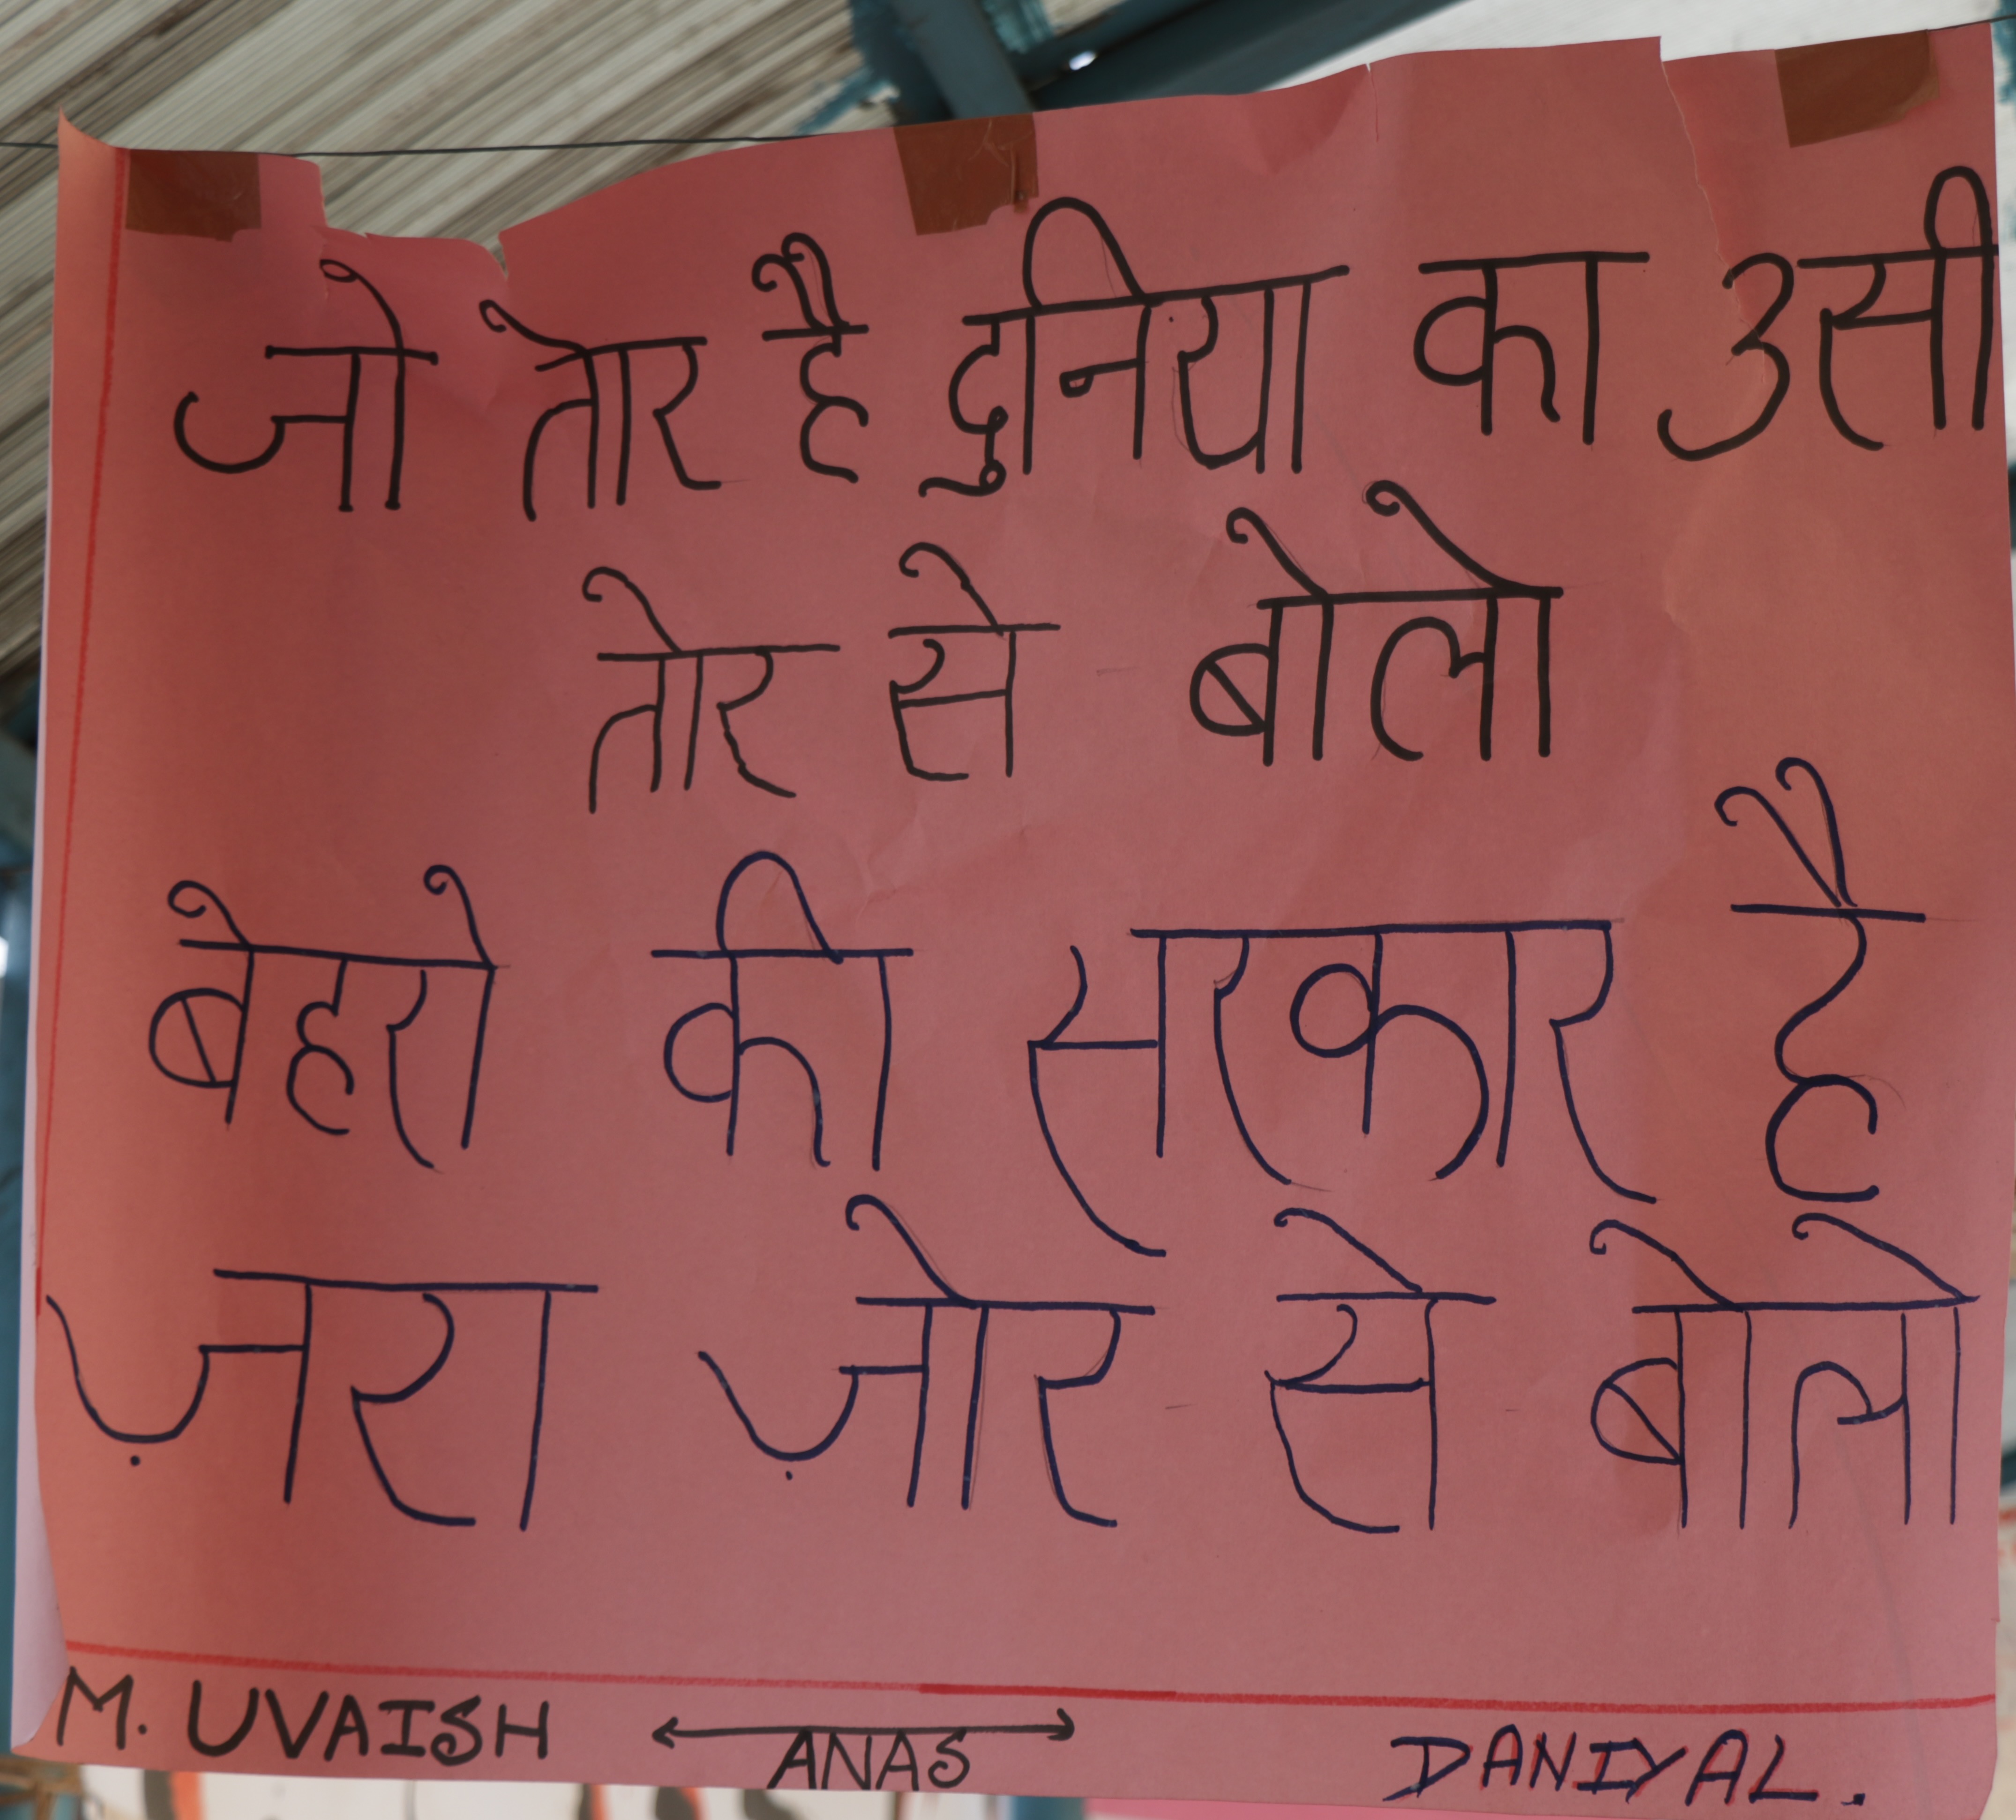 जो तोर है दुनिया का उसी
तोर से बोलो
बेहरो की सरकार है
ज़रा ज़ोर से बोलो
M. UVAISH ANAS DANIYAL.